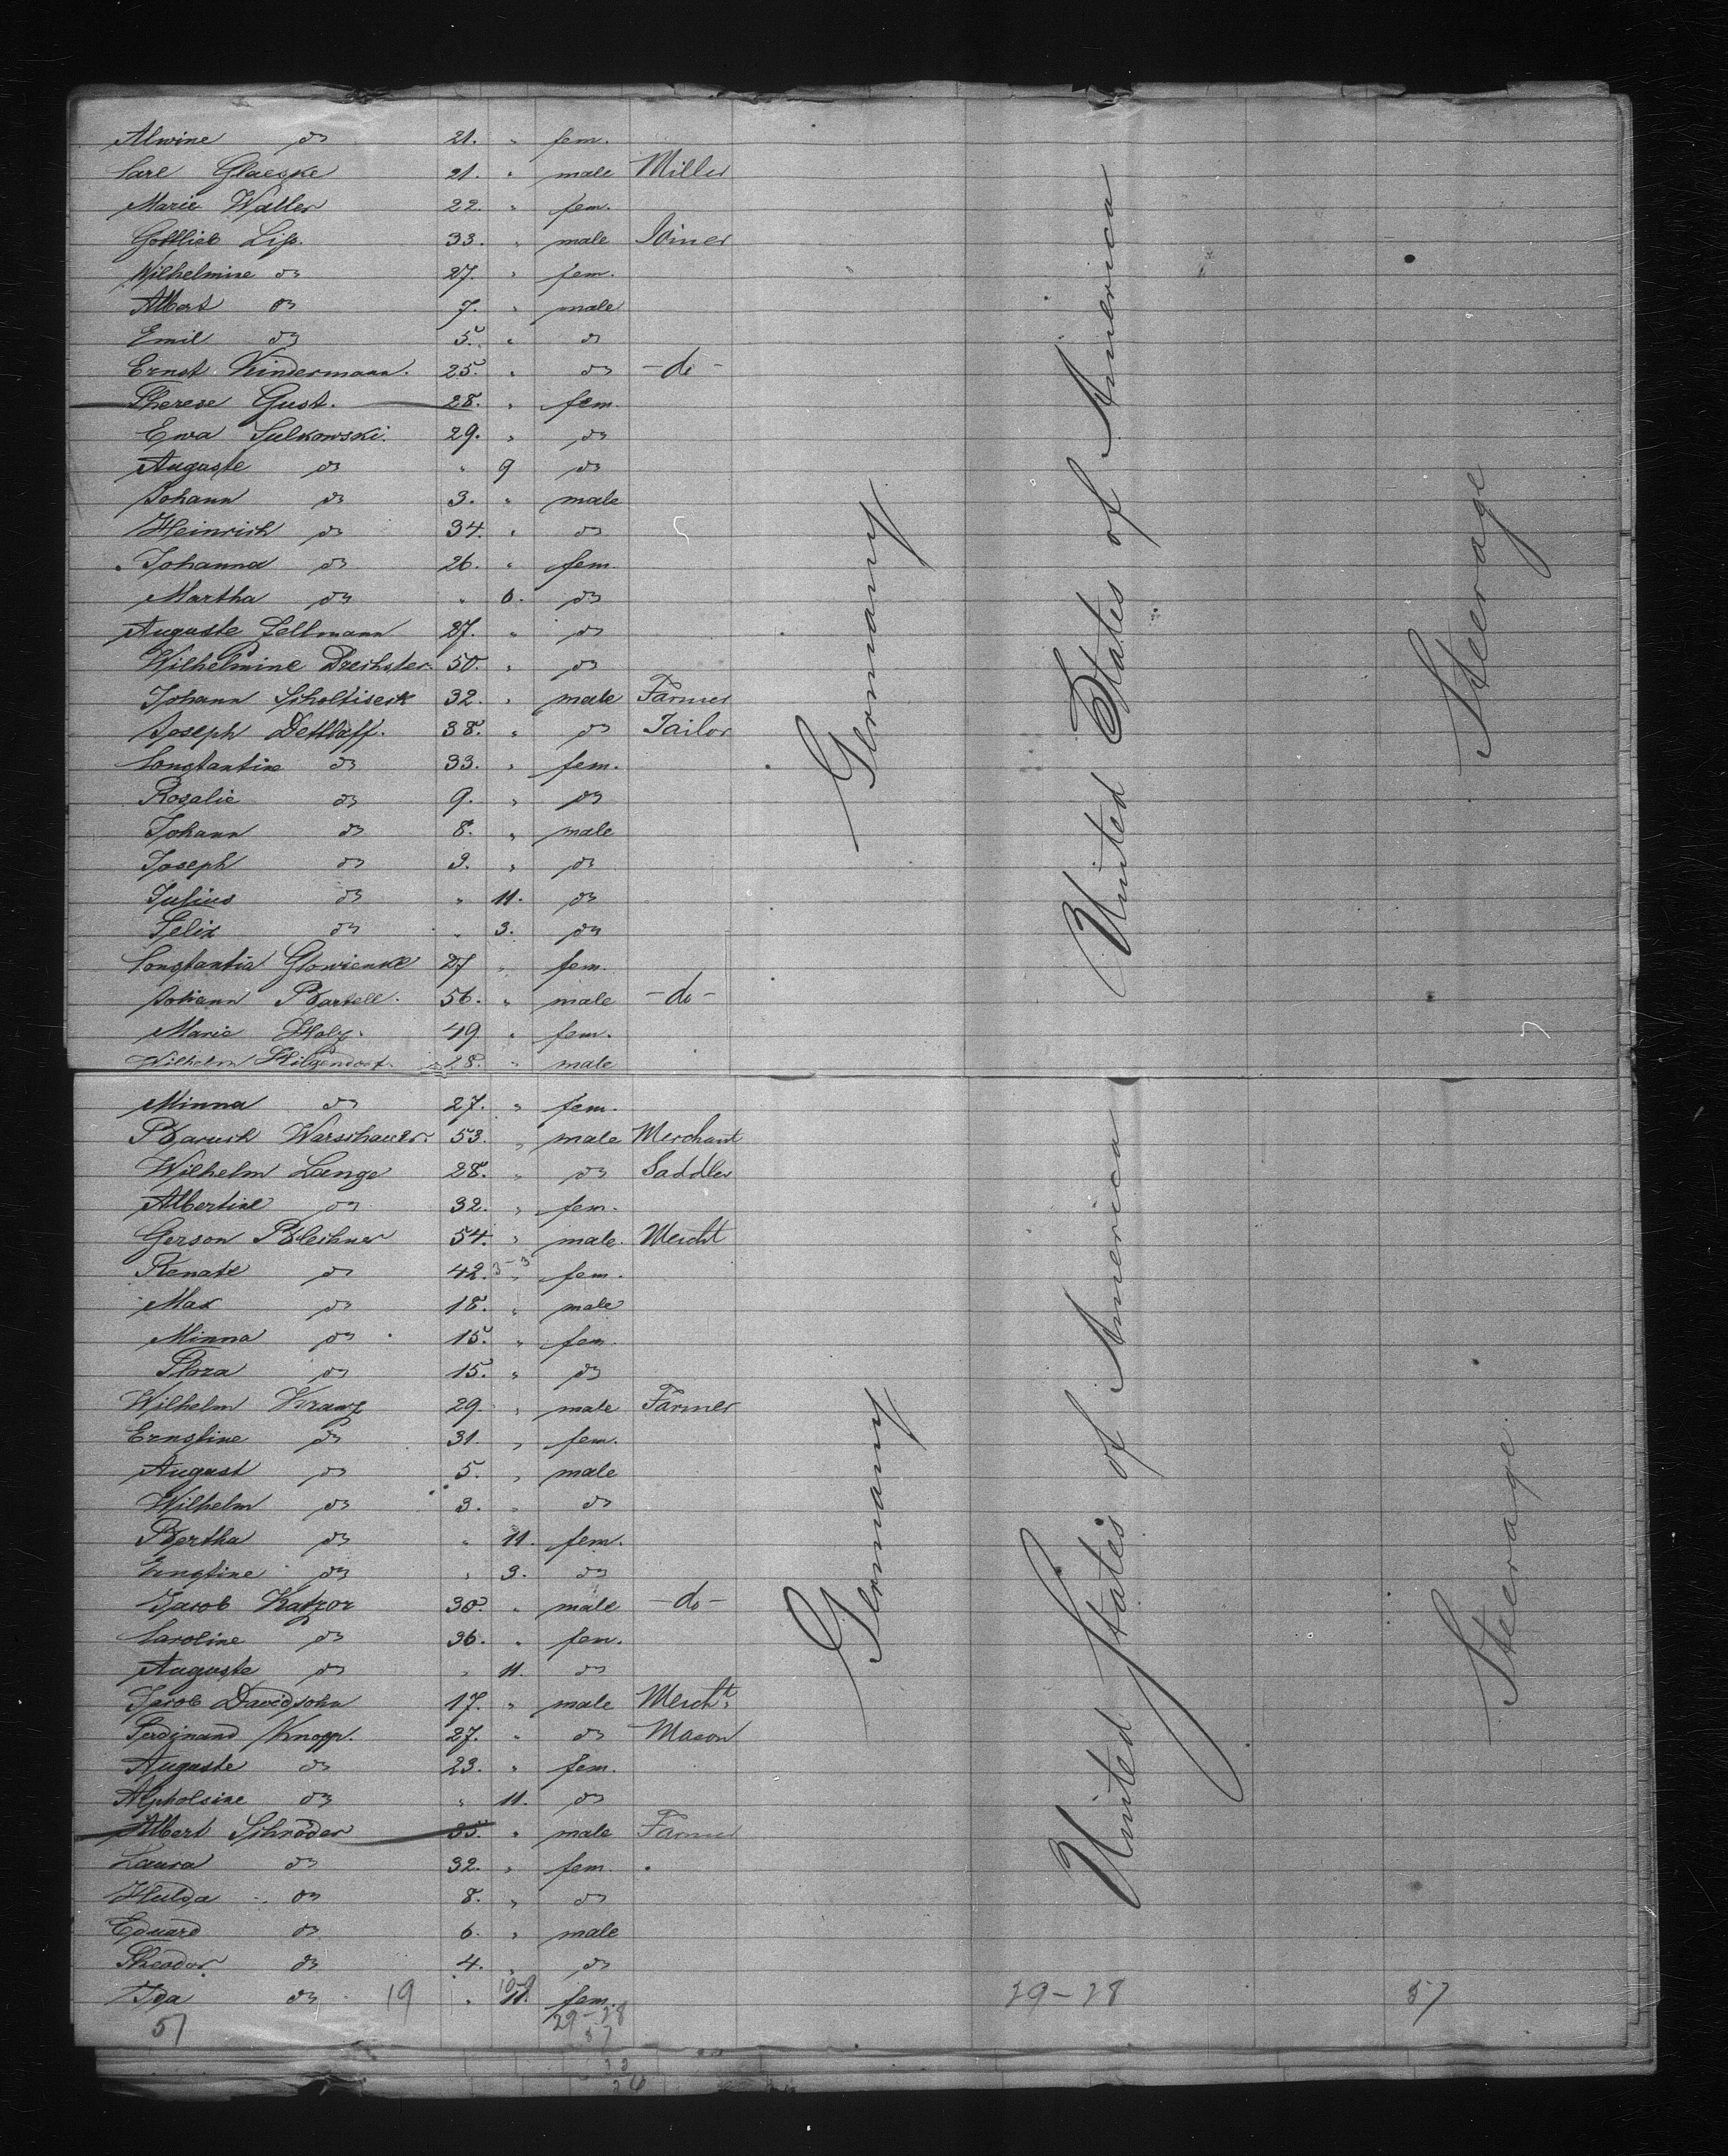 Alwine do 21. " fem.
Carl Glaeske 21. " male Miller
Marie Waller 22. " fem.
Gottlieb 33. " male Joiner
Wilhelmine do 27. " fem.
Albert do 7. " male
Emil do 5. " do
Ernst Kindermann. 25. " do -do-
Therese Gust. 28. " fem.
Ewa Sulkowski. 29. " do
Auguste do " 9 do
Johann do 3. " male
Heinrich do 34. " do
Johanna do 26. " fem.
Martha do " 6. do
Auguste Sellmann 27. " do
Wilhelmine Drechsler. 50. " do
Johann Scholtiseck 32. " male Farmer
Joseph Dettlaff. 38. " do Tailor
Constantine do 33. " fem.
Rosalie do 9. " do
Johann do 8. " male
Joseph do 3. " do
Julius do " 11. do
Felix do " 3. do
Constantia Glowienke 27 " fem.
Johann Bartell. 56. " male -do-
Marie 49 " fem.
Wilhelm Hilgendorf. 28. " male
Germany
United States of America
Steerage
Minna do 27. " fem.
Baruch Warschauer. 53. " male Merchant
Wilhelm Lange 28. " do Saddler
Albertine do 32. " fem.
Gerson Bleichner 54. " male. Mercht
Renate do 42. 3-3 " fem.
Max do 18. " male
Minna do 15. " fem.
Flora do 15. " do
Wilhelm Kranz 29. " male Farmer
Ernstine do 31. " fem.
August do 5. " male
Wilhelm do 3. " do
Bertha do " 11. fem.
Ernstine do " 3. do
Jacob Katzor 30. " male -do-
Caroline do 36. " fem.
Auguste do " 11. do
Jacob Davidsohn 17. " male Mercht.
Ferdinand Knopp. 27. " do Mason
Auguste do 23. " fem.
Alpholsine do " 11. do
Albert Schröder 35. " male Farmer
Laura do 32. " fem.
Hulda do 8. " do
Eduard do 6. " male
Theodor do 4. " do
Ida do 19 " fem. 29-28 57
57 29-28
57
Germany
United States of America
Steerage